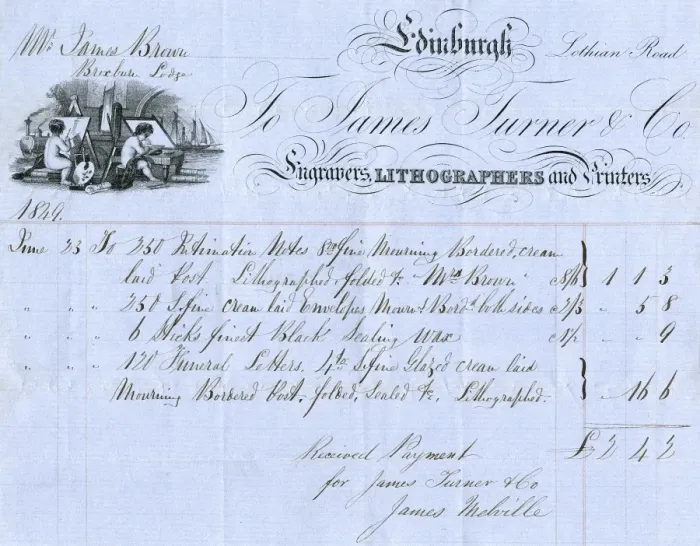 Mrs James Brown
Edinburgh
Lothian Road
Broxburn Lodge
To James Turner & Co.
Engravers, LITHOGRAPHERS and Printers
1849.
June 23 To 250 Intimation Notes 8vo fine Mourning Bordered, cream
laid Post. Lithographed, folded &c. "Mrs Brown" 1 1 3
" " " 250 S.fine cream laid Envelopes Mourng Bord. both sides 2/3 " 5 8
" " " 6 Sticks finest Black Sealing Wax " 9
" " " 120 Funeral Letters, 4to S.fine Glazed cream laid
Mourning Bordered Post, folded, Sealed &c. Lithographed. " 16 6
Received Payment £2 4 2
for James Turner & Co
James Melville